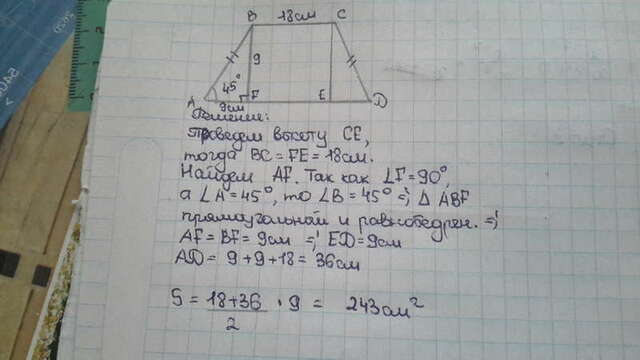 B 18см C
9
45°
A 9см F E D
Решение:
Проведем высоту CE,
тогда BC = FE = 18см.
Найдем AF. Так как ∠F = 90°,
а ∠A = 45°, то ∠B = 45° =>; △ABF
прямоугольный и равнобедрен. =>;
AF = BF = 9см =>; ED = 9см
AD = 9 + 9 + 18 = 36см
S = 18+36/2 · 9 = 243см²